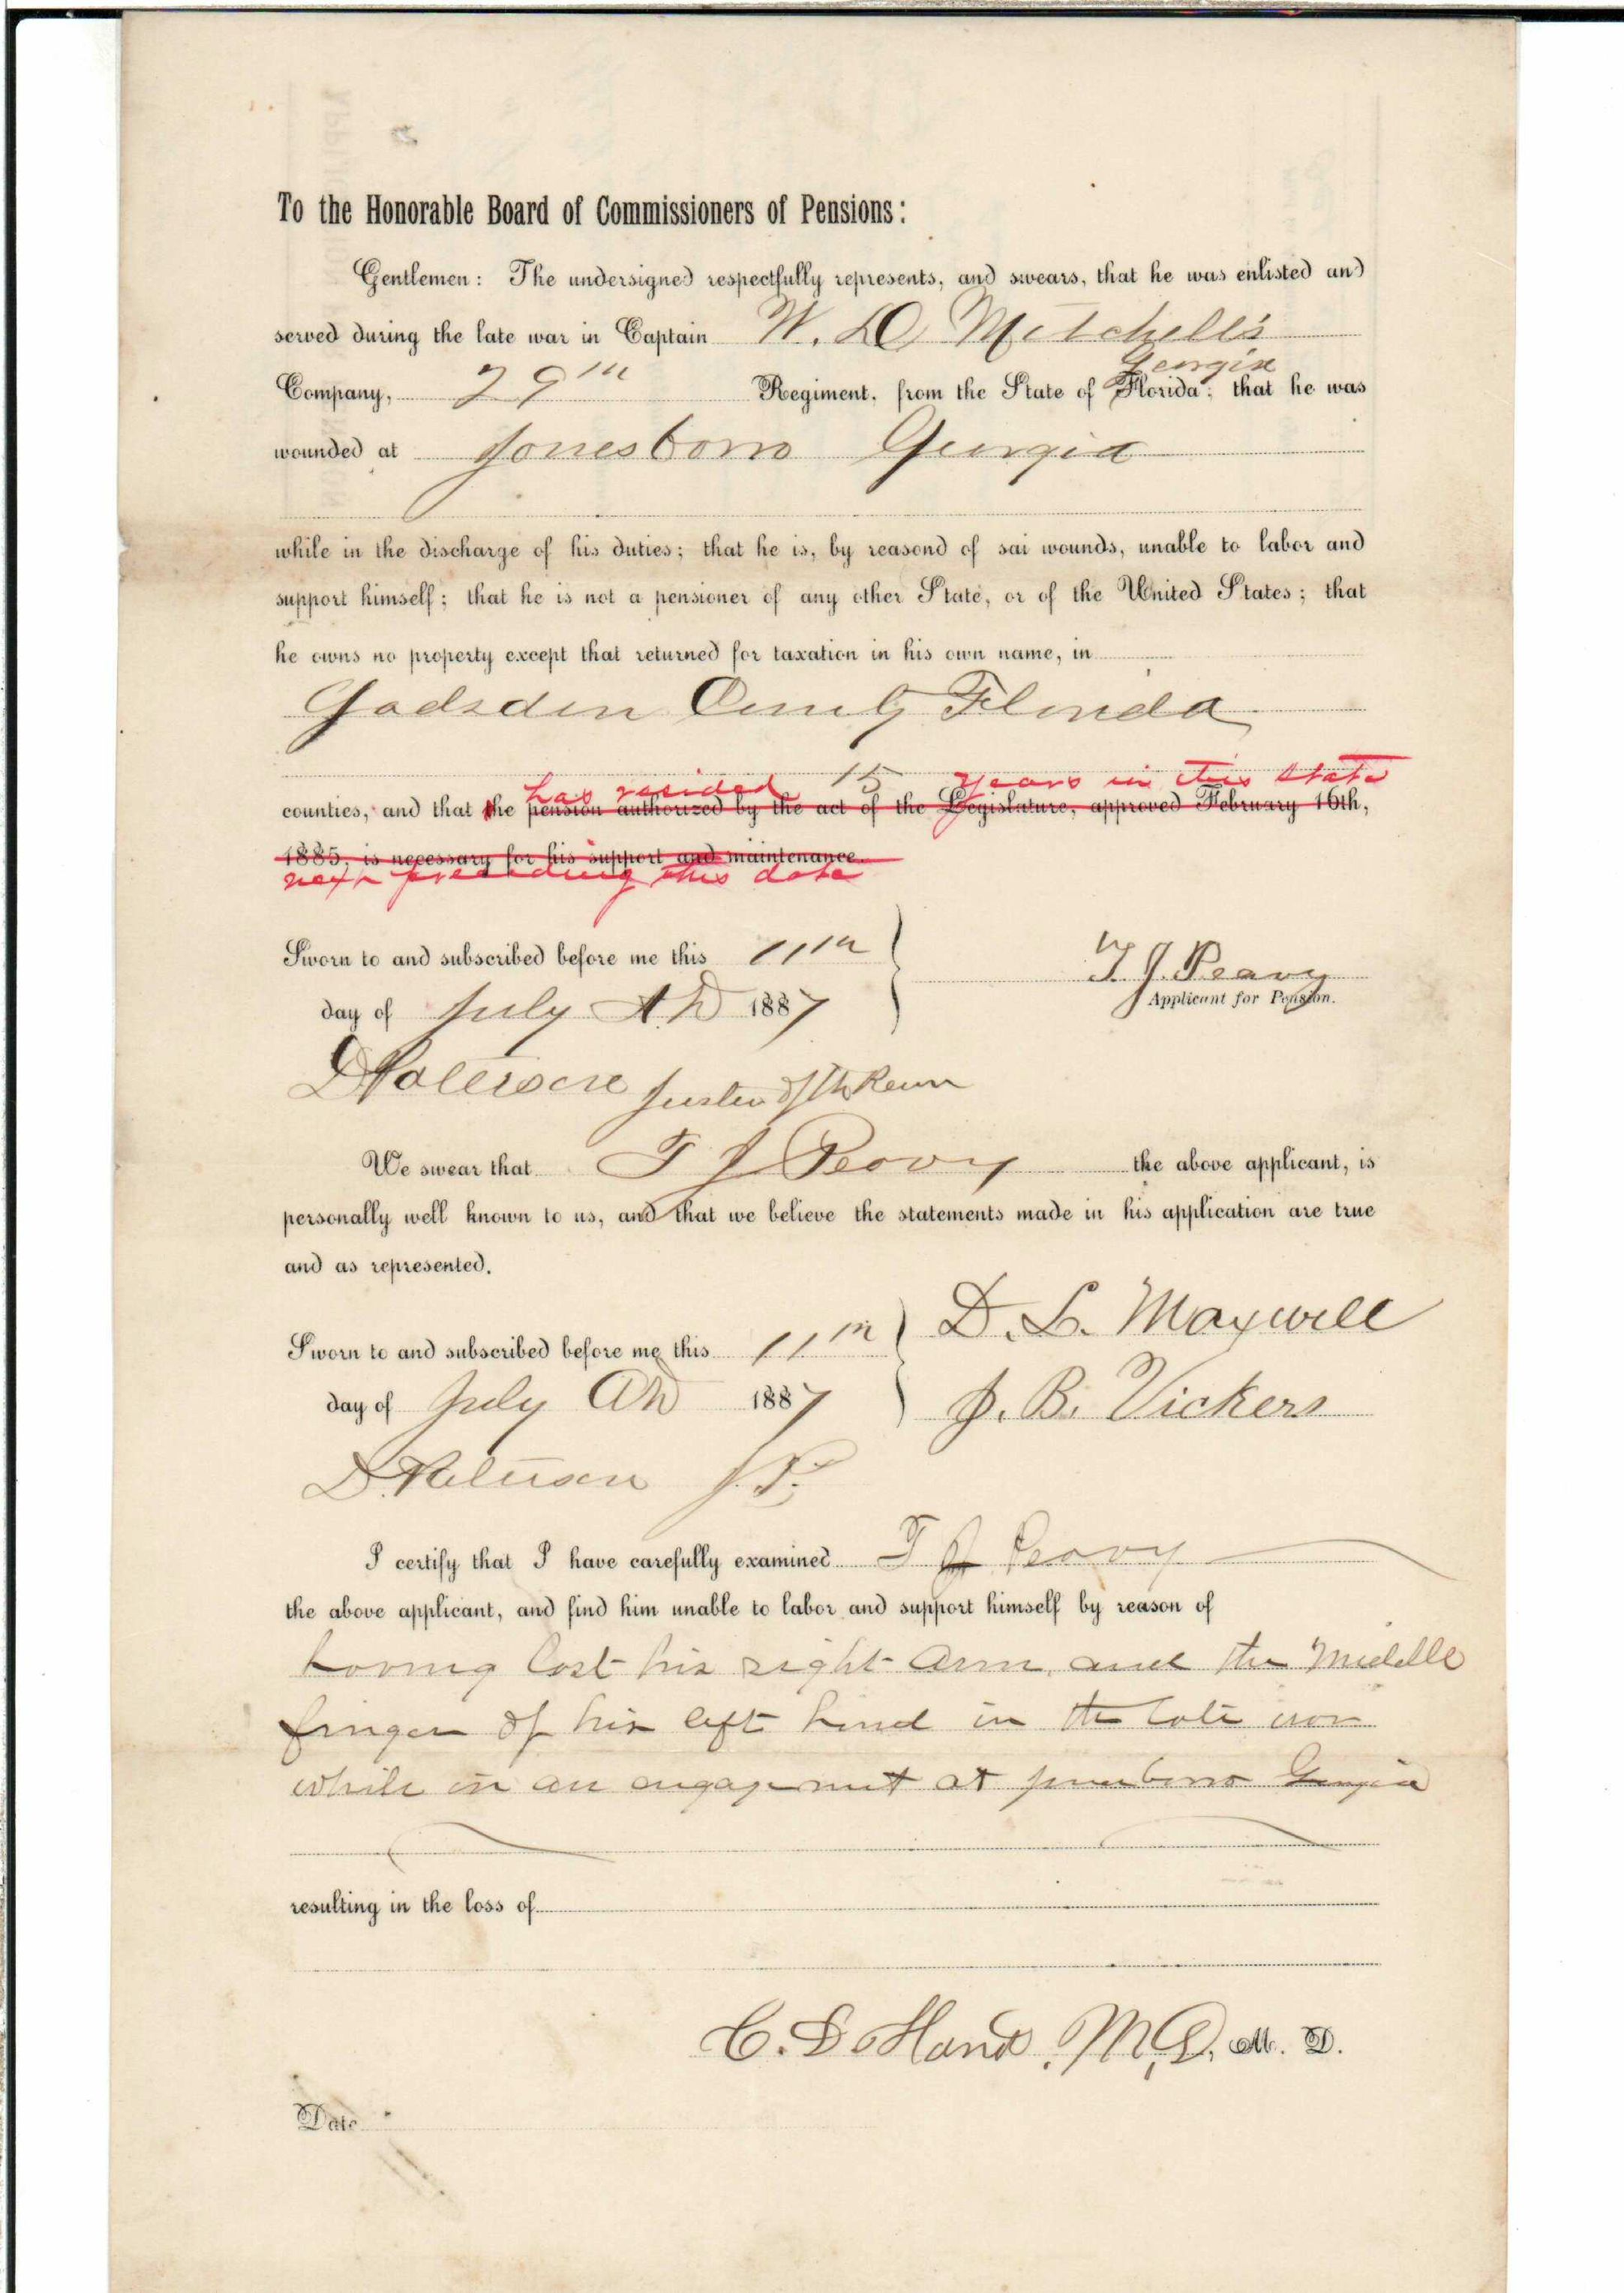 To the Honorable Board of Commissioners of Pensions:
Gentlemen: The undersigned respectfully represents, and swears, that he was enlisted and
served during the late war in Captain W. D Mitchell's
Georgia
Company, 29th Regiment, from the State of Florida; that he was
wounded at Jonesboro Georgia
while in the discharge of his duties; that he is, by reasond of sai wounds, unable to labor and
support himself; that he is not a pensioner of any other State, or of the United States; that
he owns no property except that returned for taxation in his own name, in
Gadsden County Florida
has resided 15 years in this state
counties, and that the pension authorized by the act of the Legislature, approved February 16th,
1885, is necessary for his support and maintenance.
next preceding this date
Sworn to and subscribed before me this 11th
T. J. Peavy
day of July A.D 1887
Applicant for Pension.
Justice of the Peace
We swear that T J Peavy the above applicant, is
personally well known to us, and that we believe the statements made in his application are true
and as represented.
D. L. Maxwell
Sworn to and subscribed before me this 11th
day of July AD 1887
J. B. Vickers
J. P.
I certify that I have carefully examined T J Peavy
the above applicant, and find him unable to labor and support himself by reason of
having lost his right arm, and the middle
finger of his left hand in the late war
while in an engagement at Jonesboro Georgia
resulting in the loss of
C. S. Hand, M.D, M. D.
Date